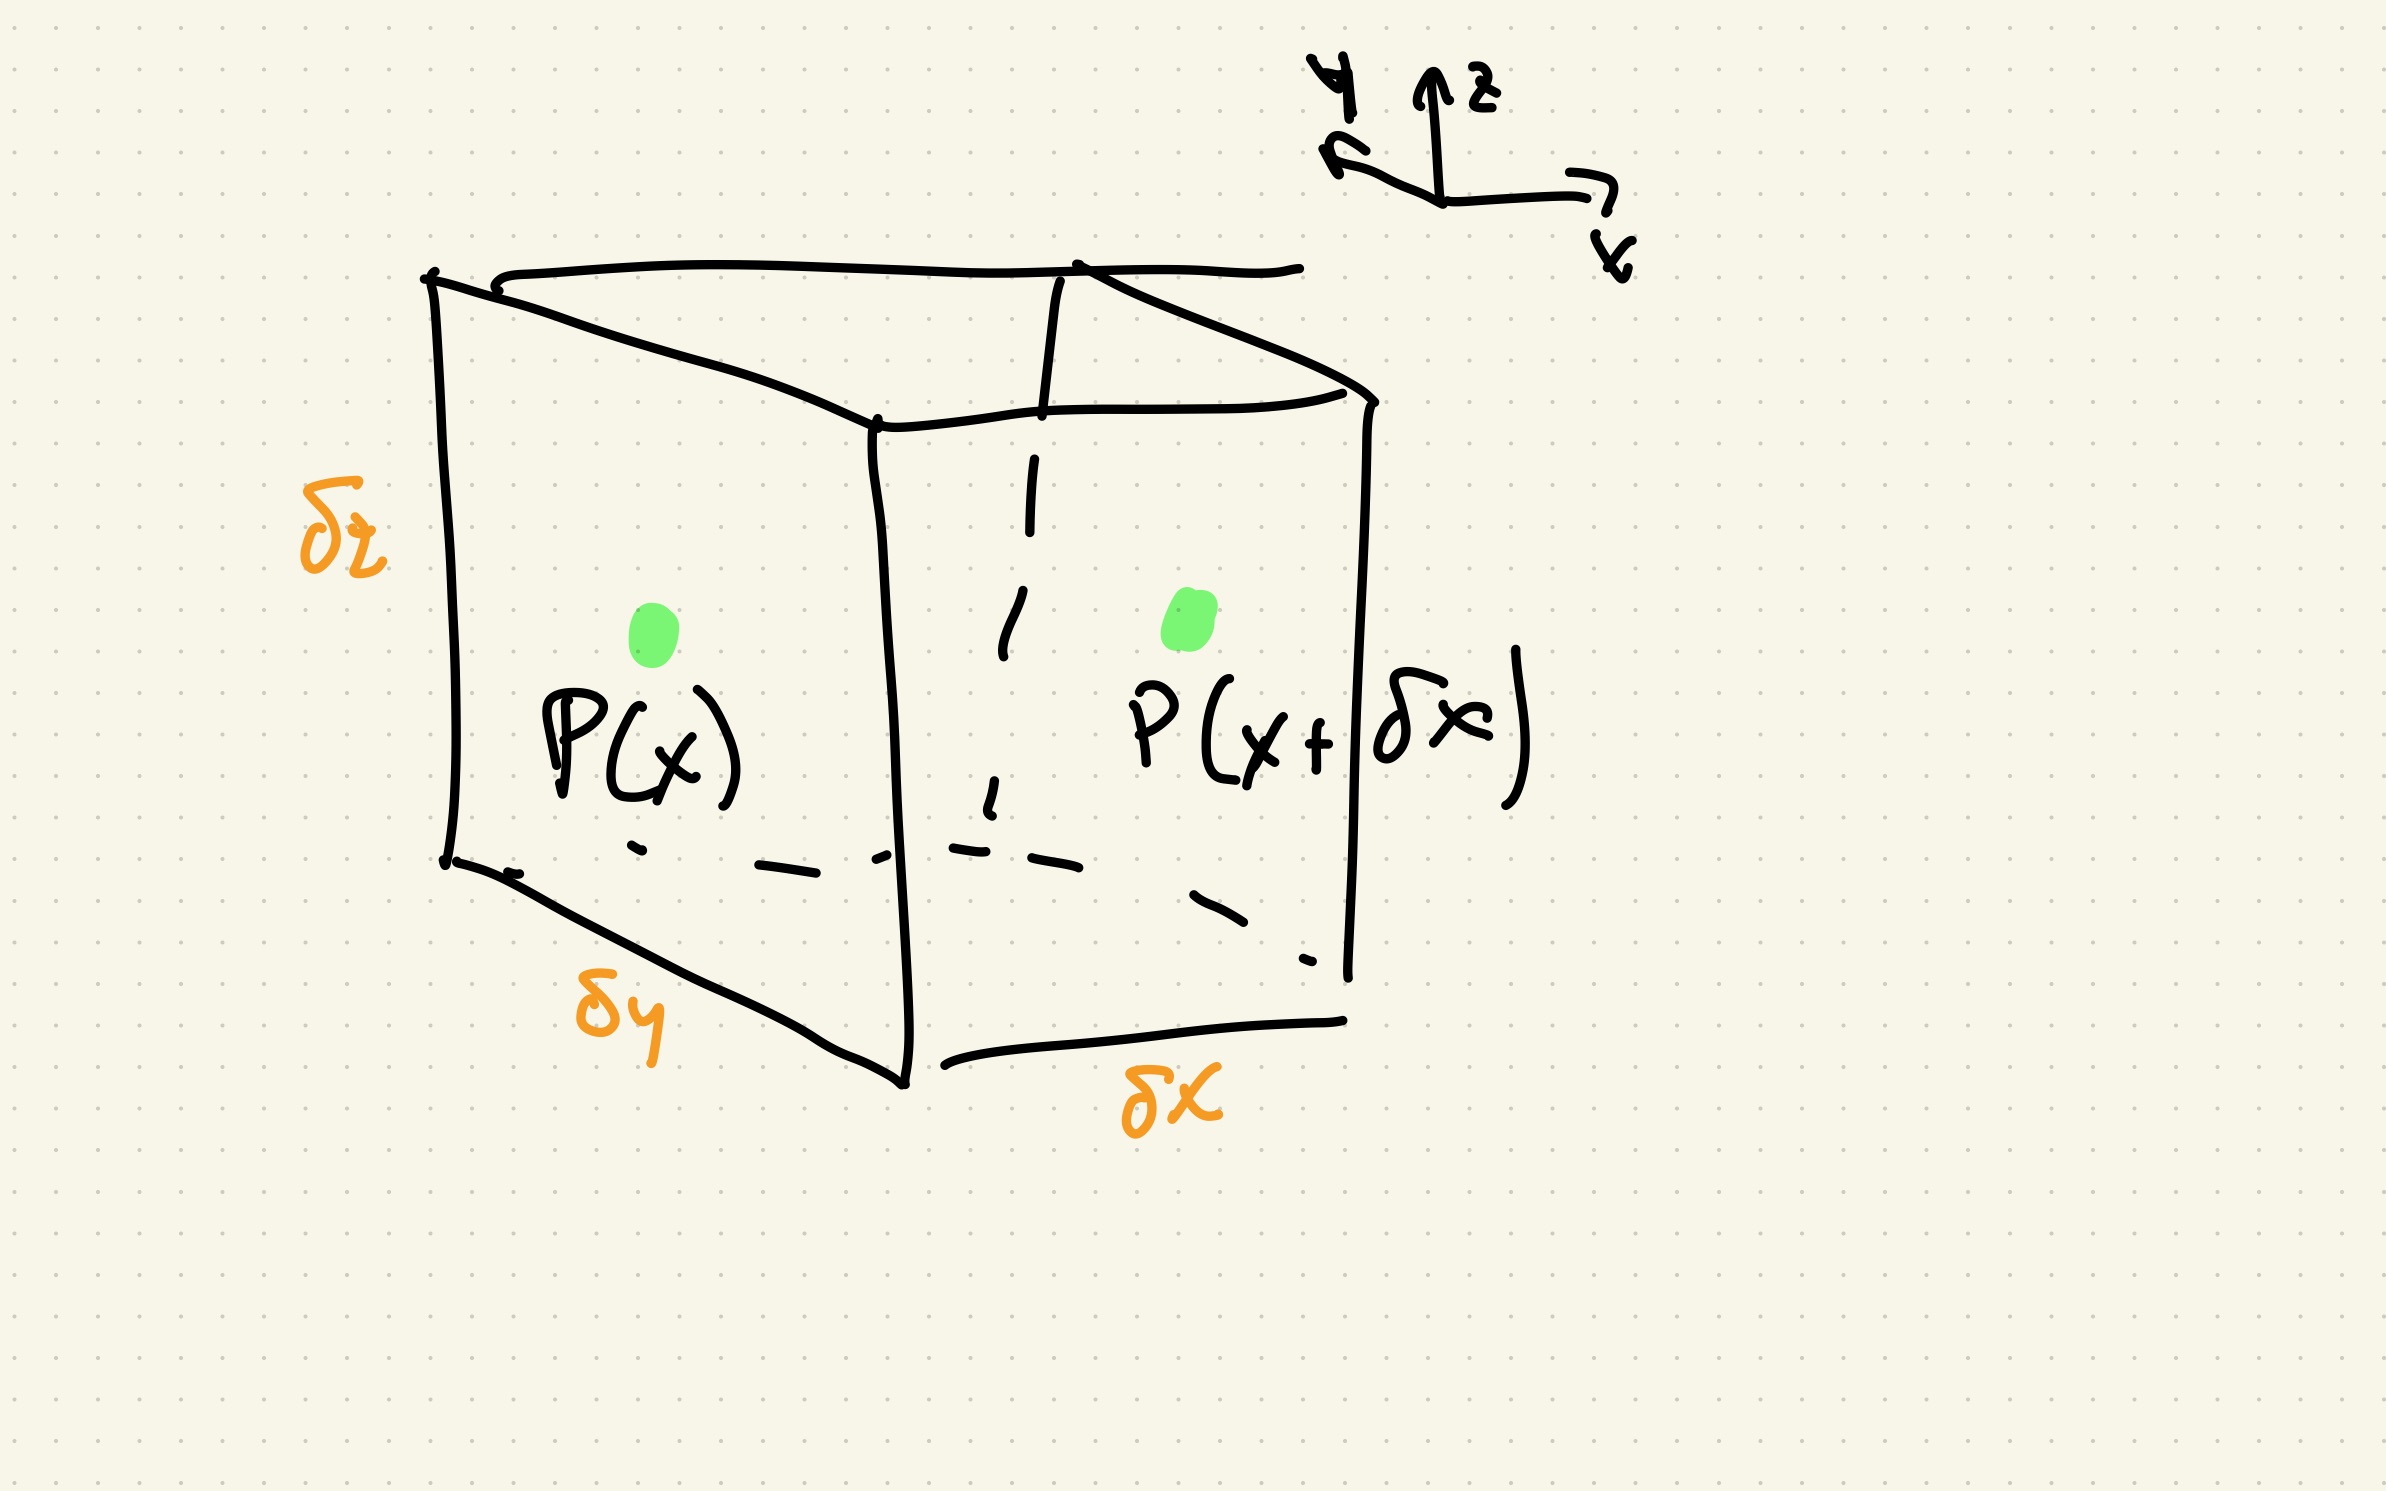 y z
x
δz
P(x) P(x+δx)
δy
δx